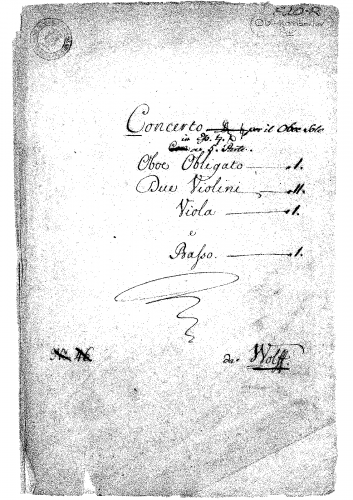 Concerto per il Oboe Solo
Oboe Obligato 1.
Due Violini 11.
Viola 1.
e
Basso. 1.
No. 46
da Wolff.